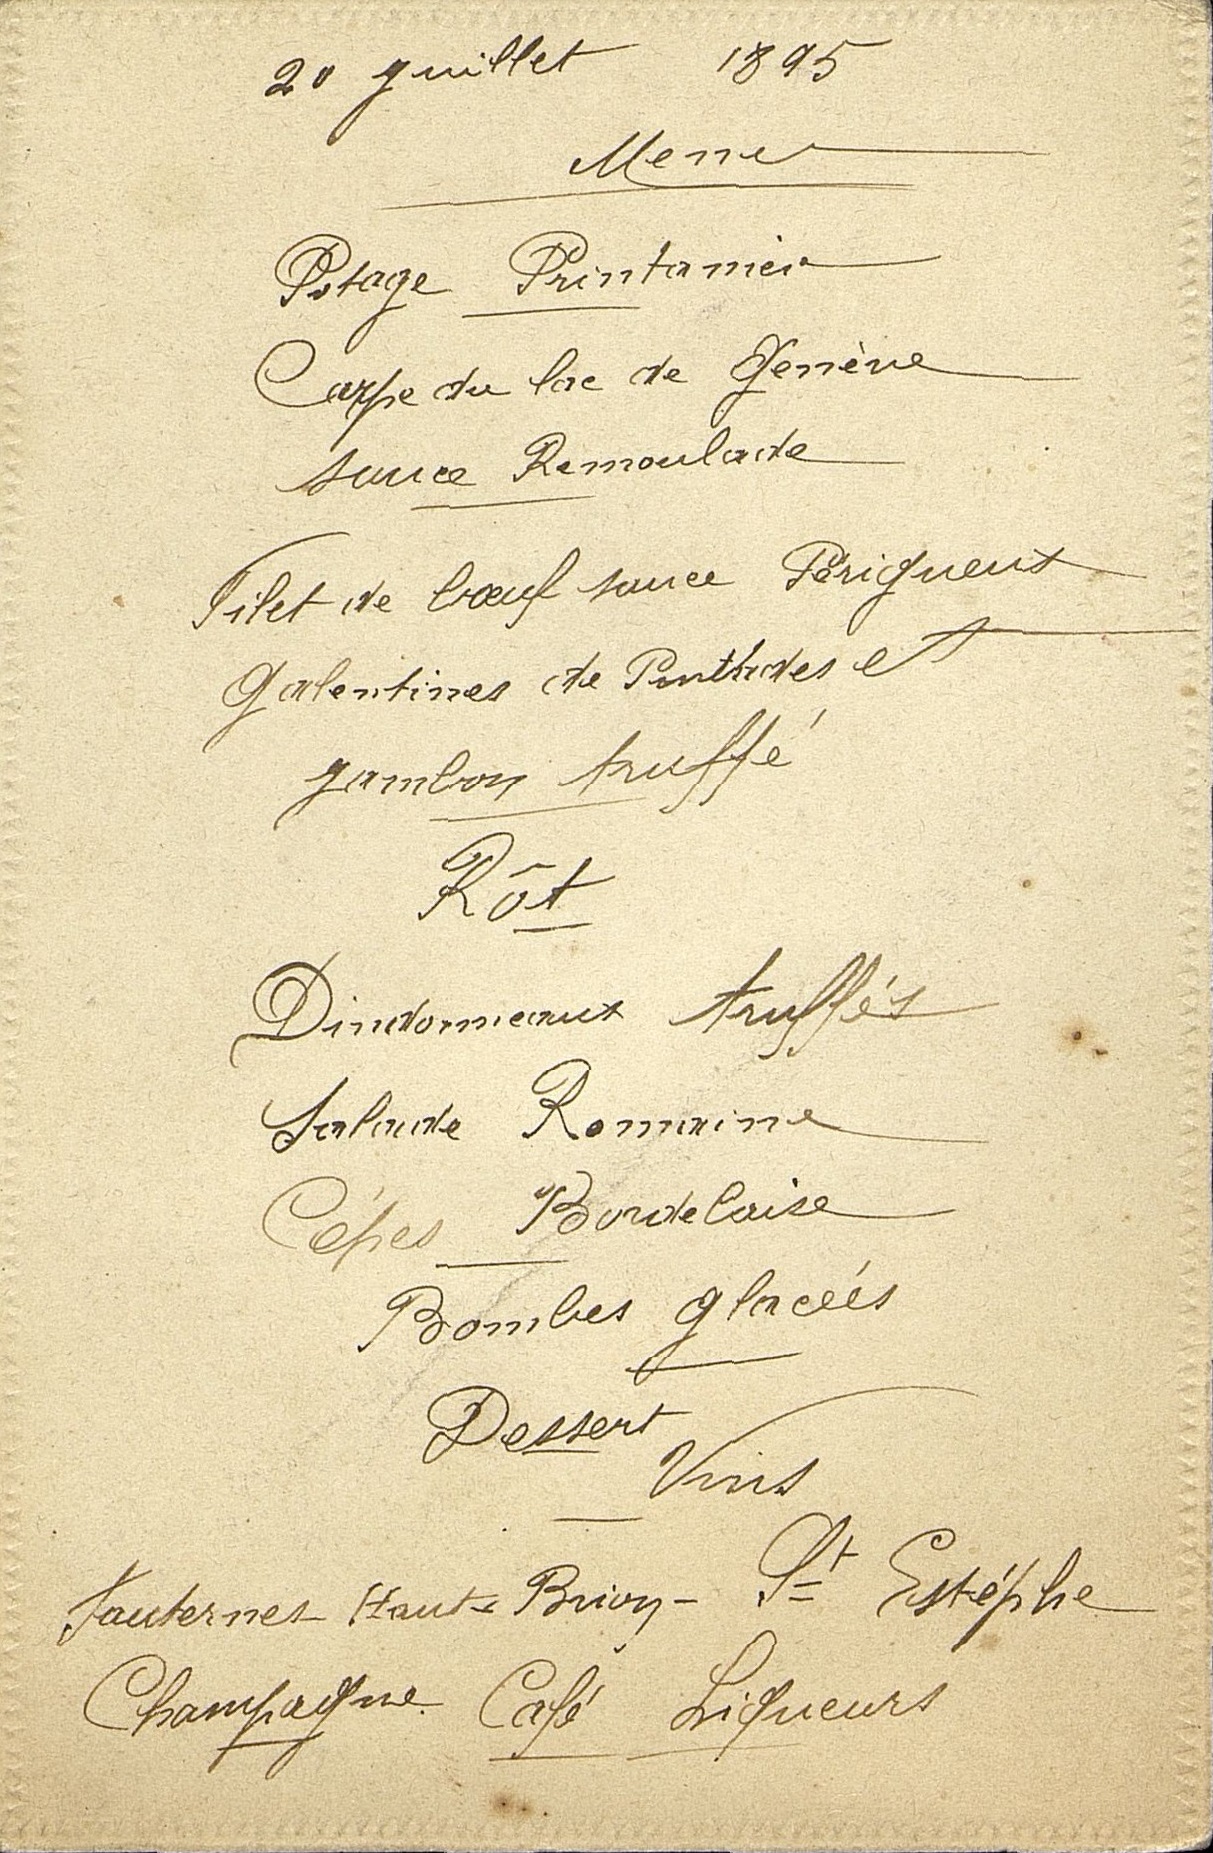 20 Juillet 1895
Menu
Potage Printanier
Carpe du lac de Genève
sauce Remoulade
Filet de bœuf sauce Périgueux
Galentines de Pintades et
Jambon truffé
Rôt
Dindonneaux truffés
Salade Romaine
Cépes Bordelaise
Bombes glacéés
Dessert
Vins
Sauternes - Haut-Brion - St Estéphe
Champagne Café Liqueurs